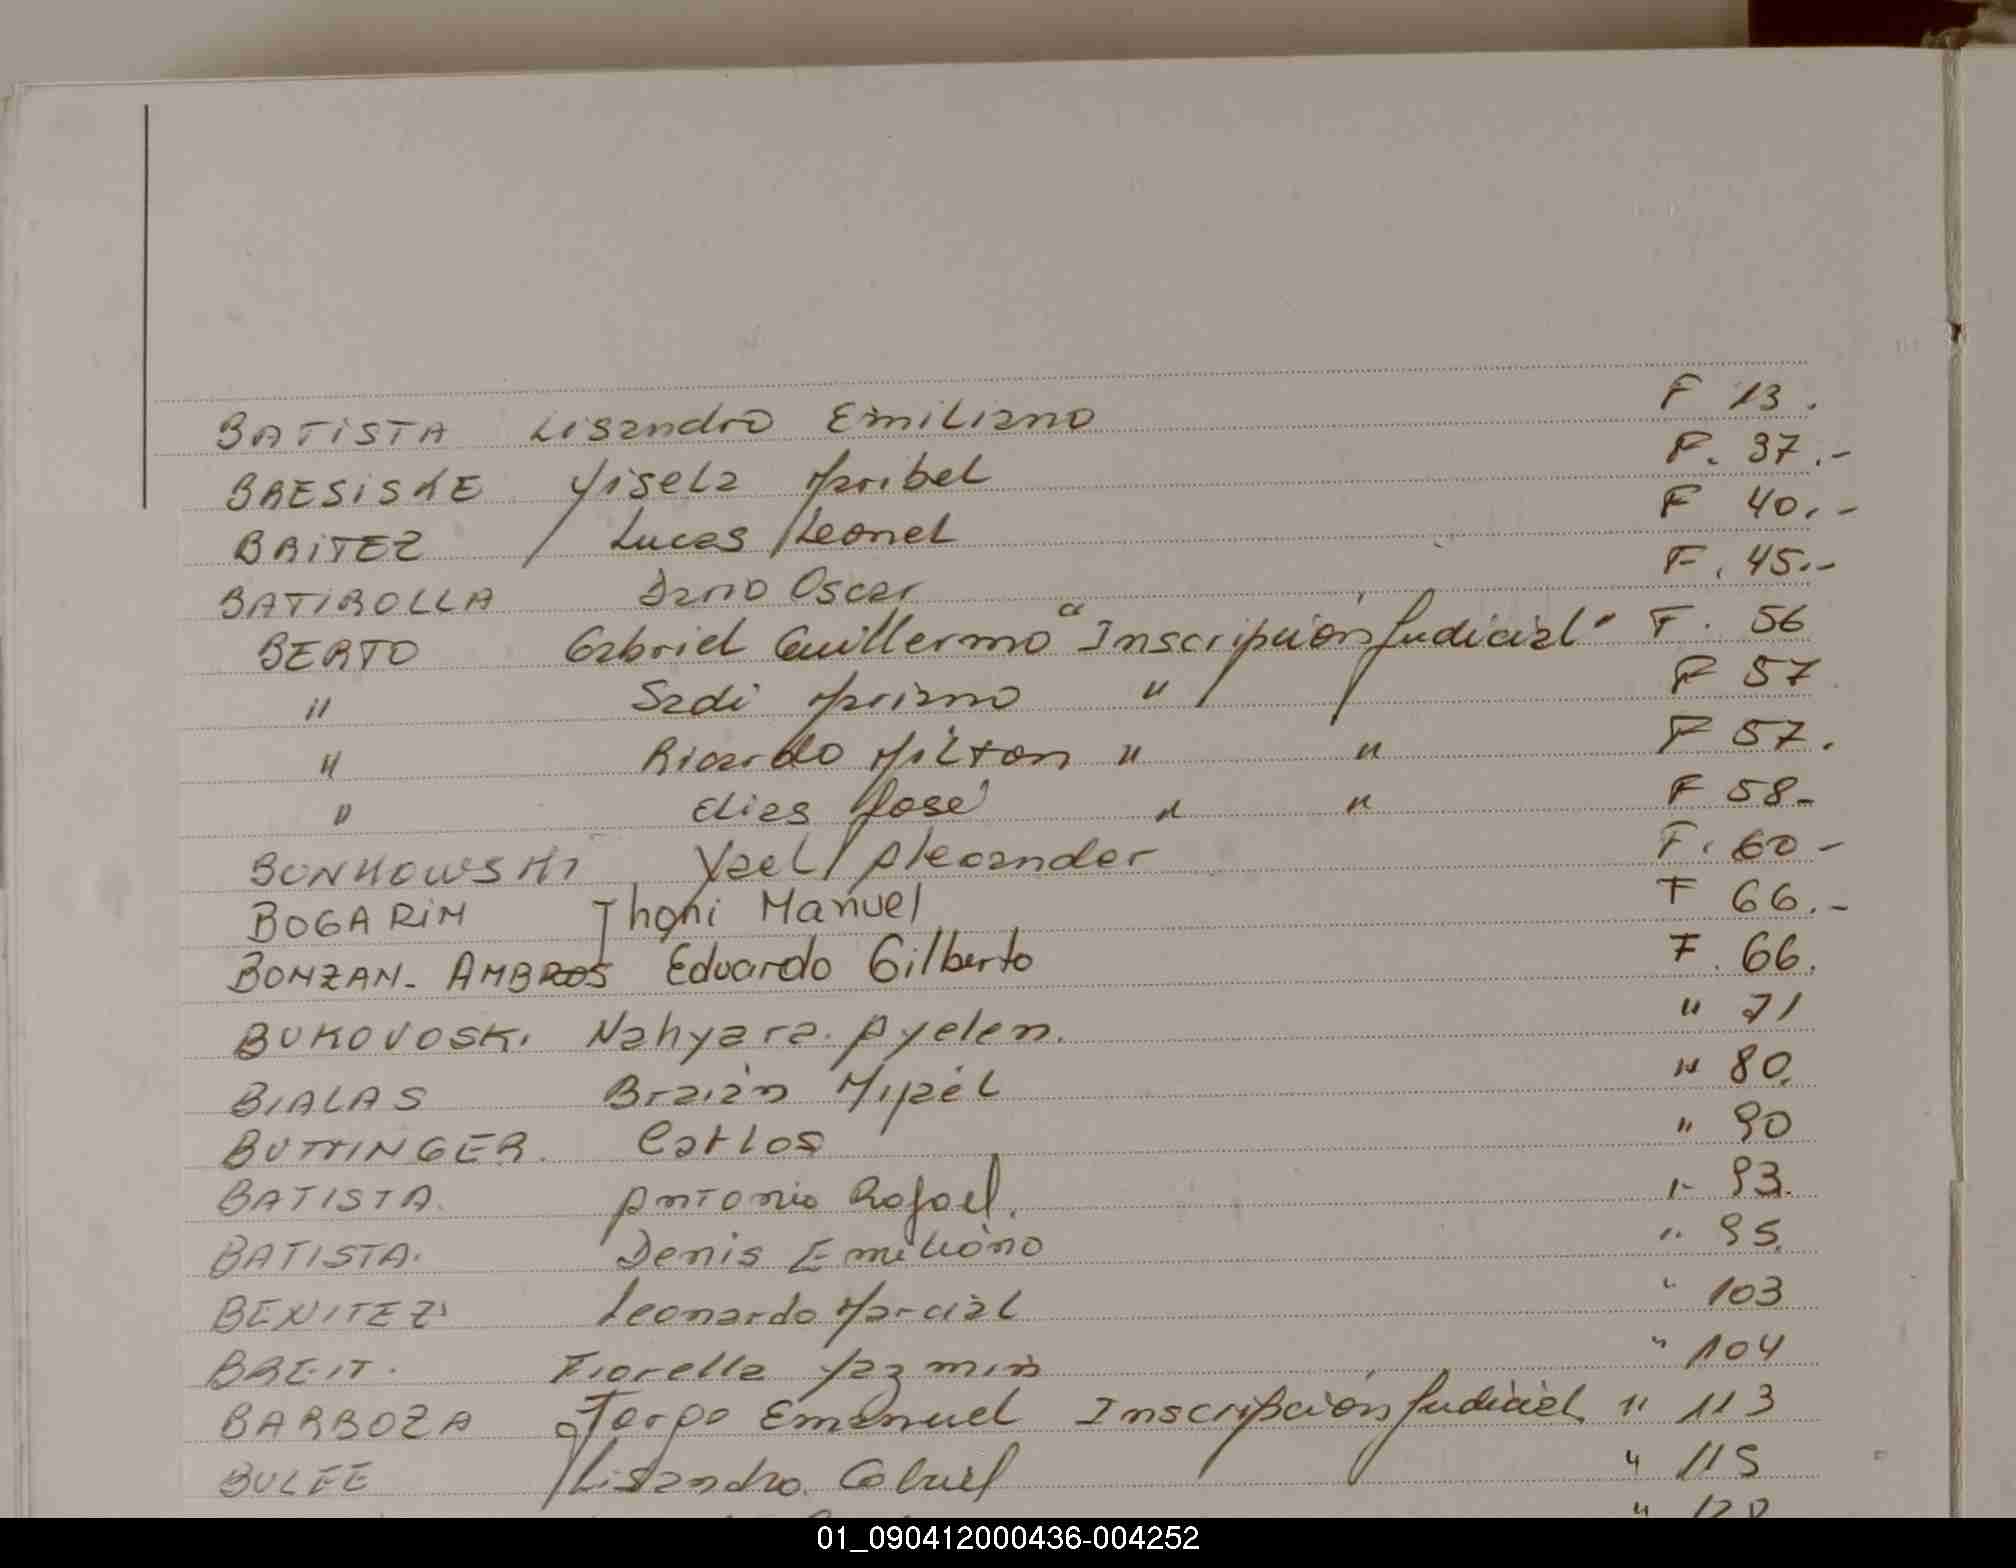 BATISTA Lisandro Emiliano F 13.
BAESISKE Yisela Maribel F. 37.-
BRITEZ Lucas Leonel F 40.-
BATIROLLA Dano Oscar F. 45.-
BERTO Gabriel Guillermo "Inscripción Judicial" F. 56
" Sadi Mariano " F 57
" Ricardo Milton " " F 57.
" Elias José " " F 58-
BONKOWSKI Yael Alexander F. 60-
BOGARIM Jhoni Manuel F 66.-
BONZAN-AMBROS Eduardo Gilberto F. 66.
BUKOVOSKI Nahyara Ayelen. " 71
BIALAS Braian Miguél " 80.
BUTTINGER. Carlos " 90
BATISTA. Antonio Rafael. " 93.
BATISTA. Denis Emiliano " 95.
BENITEZ Leonardo Marcial " 103
BREIT. Fiorella Yazmin " 104
BARBOZA Jorge Emanuel Inscripción Judicial " 113
BULFE Lisandro Gabriel " 115
" 120
01_090412000436-004252